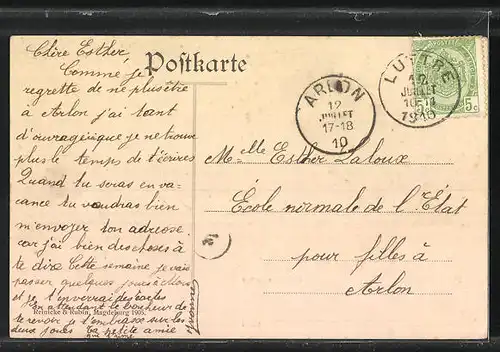 Postkarte
Chère Esther,
Comme je
regrette de ne plus être
à Arlon, j'ai tant
d'ouvrage que je ne trouve
plus le temps de t'écrire
Quand tu seras en va-
cance tu voudras bien
m'envoyer ton adresse
car j'ai bien des choses à
te dire Cette semaine je vais
passer quelques jours à
et je t'enverrai des cartes
En attendant le bonheur de
te revoir je t'embrasse sur les
deux joues ta petite amie
Reinicke & Rubin, Magdeburg 1905.
ARLON
12
JUILLET
17-18
10
LUTTRE
12
JUILLET
1910
5c
Melle Esther Laloux
École normale de l'État
pour filles à
Arlon